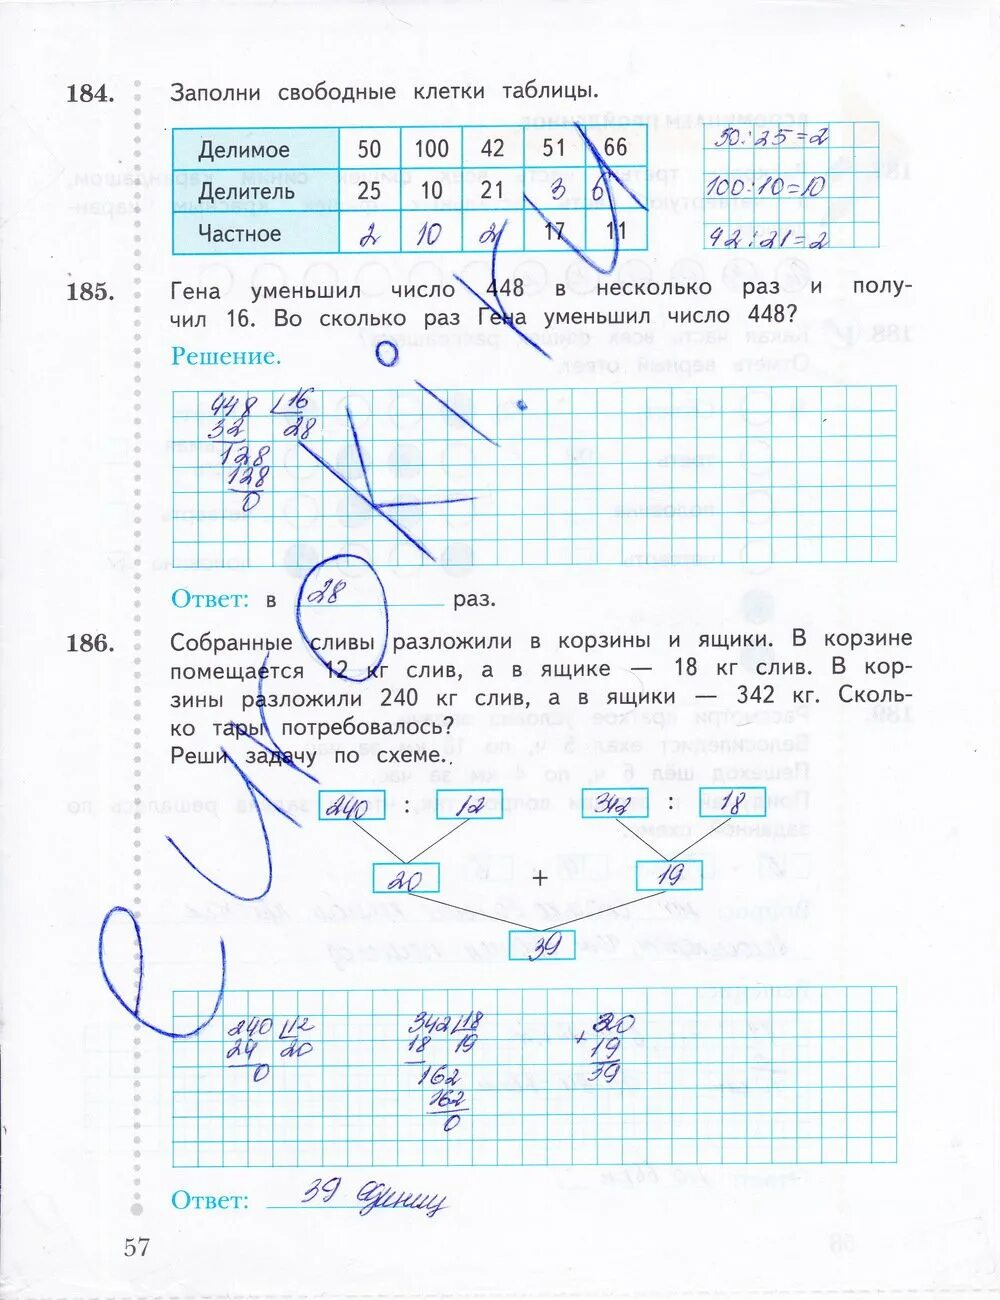 184. Заполни свободные клетки таблицы.
Делимое 50 100 42 51 66
Делитель 25 10 21 3 6
Частное 2 10 2 17 11
50:25=2
100:10=10
42:21=2
185. Гена уменьшил число 448 в несколько раз и полу-
чил 16. Во сколько раз Гена уменьшил число 448?
Решение.
448 16
32 28
128
128
0
Ответ: в 28 раз.
186. Собранные сливы разложили в корзины и ящики. В корзине
помещается 12 кг слив, а в ящике — 18 кг слив. В кор-
зины разложили 240 кг слив, а в ящики — 342 кг. Сколь-
ко тары потребовалось?
Реши задачу по схеме.
240 : 12 342 : 18
20 + 19
39
240 12 342 18 20
24 20 18 19 + 19
0 162 39
162
0
Ответ: 39 единиц
57
еуроки.ru